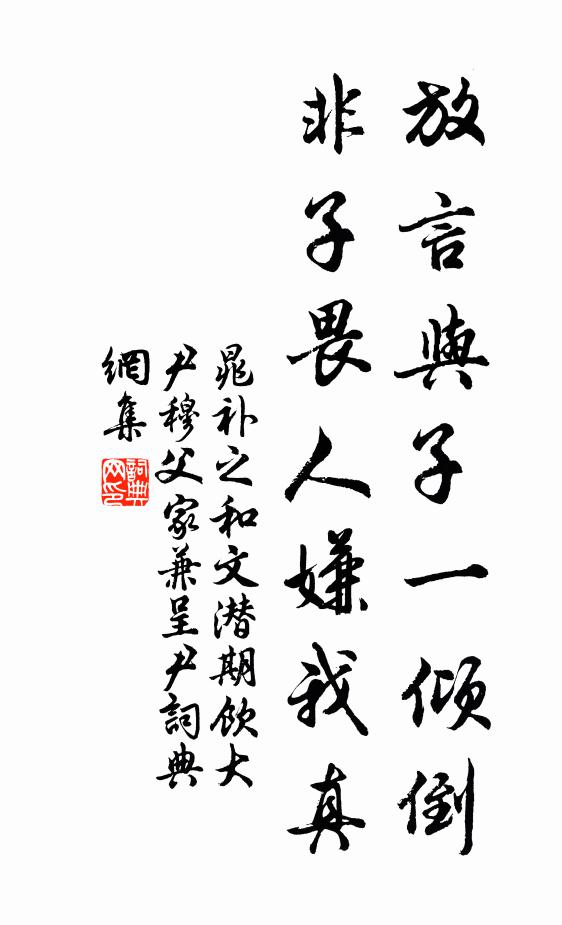 放言與子一傾倒
非子畏人嫌我真
晁补之和文潜期飲大
尹穆父家兼呈尹詞典
網集
詞典網印